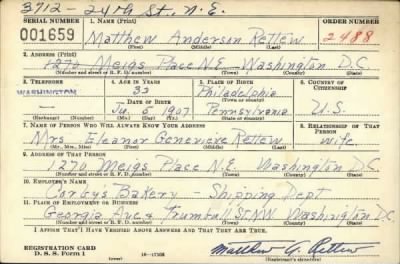 3712 - 24th St., N.E.
SERIAL NUMBER 1. NAME (Print) ORDER NUMBER
001659 Matthew Anderson Rettew 2488
(First) (Middle) (Last)
2. ADDRESS (Print)
1270 Meigs Place N.E. Washington D.C.
(Number and street or R. F. D. number) (Town) (County) (State)
3. TELEPHONE 4. AGE IN YEARS 5. PLACE OF BIRTH 6. COUNTRY OF CITIZENSHIP
WASHINGTON 33 Philadelphia
DATE OF BIRTH (Town or county)
5 1907 Pennsylvania U.S.
(Mo.) (Day) (Yr.) (State or country)
7. NAME OF PERSON WHO WILL ALWAYS KNOW YOUR ADDRESS 8. RELATIONSHIP OF THAT PERSON
Mrs. Eleanor Genevieve Rettew Wife
(Mr., Mrs., Miss) (First) (Middle) (Last)
9. ADDRESS OF THAT PERSON
1270 Meigs Place N.E. Washington D.C.
(Number and street or R. F. D. number) (Town) (County) (State)
10. EMPLOYER'S NAME
Corby's Bakery - Shipping Dept
11. PLACE OF EMPLOYMENT OR BUSINESS
Georgia Ave & Trumbull St. NW Washington D.C.
(Number and street or R. F. D. number) (Town) (County) (State)
I AFFIRM THAT I HAVE VERIFIED ABOVE ANSWERS AND THAT THEY ARE TRUE.
REGISTRATION CARD
D. S. S. Form 1 16-17105 Matthew A. Rettew
(Registrant's signature)